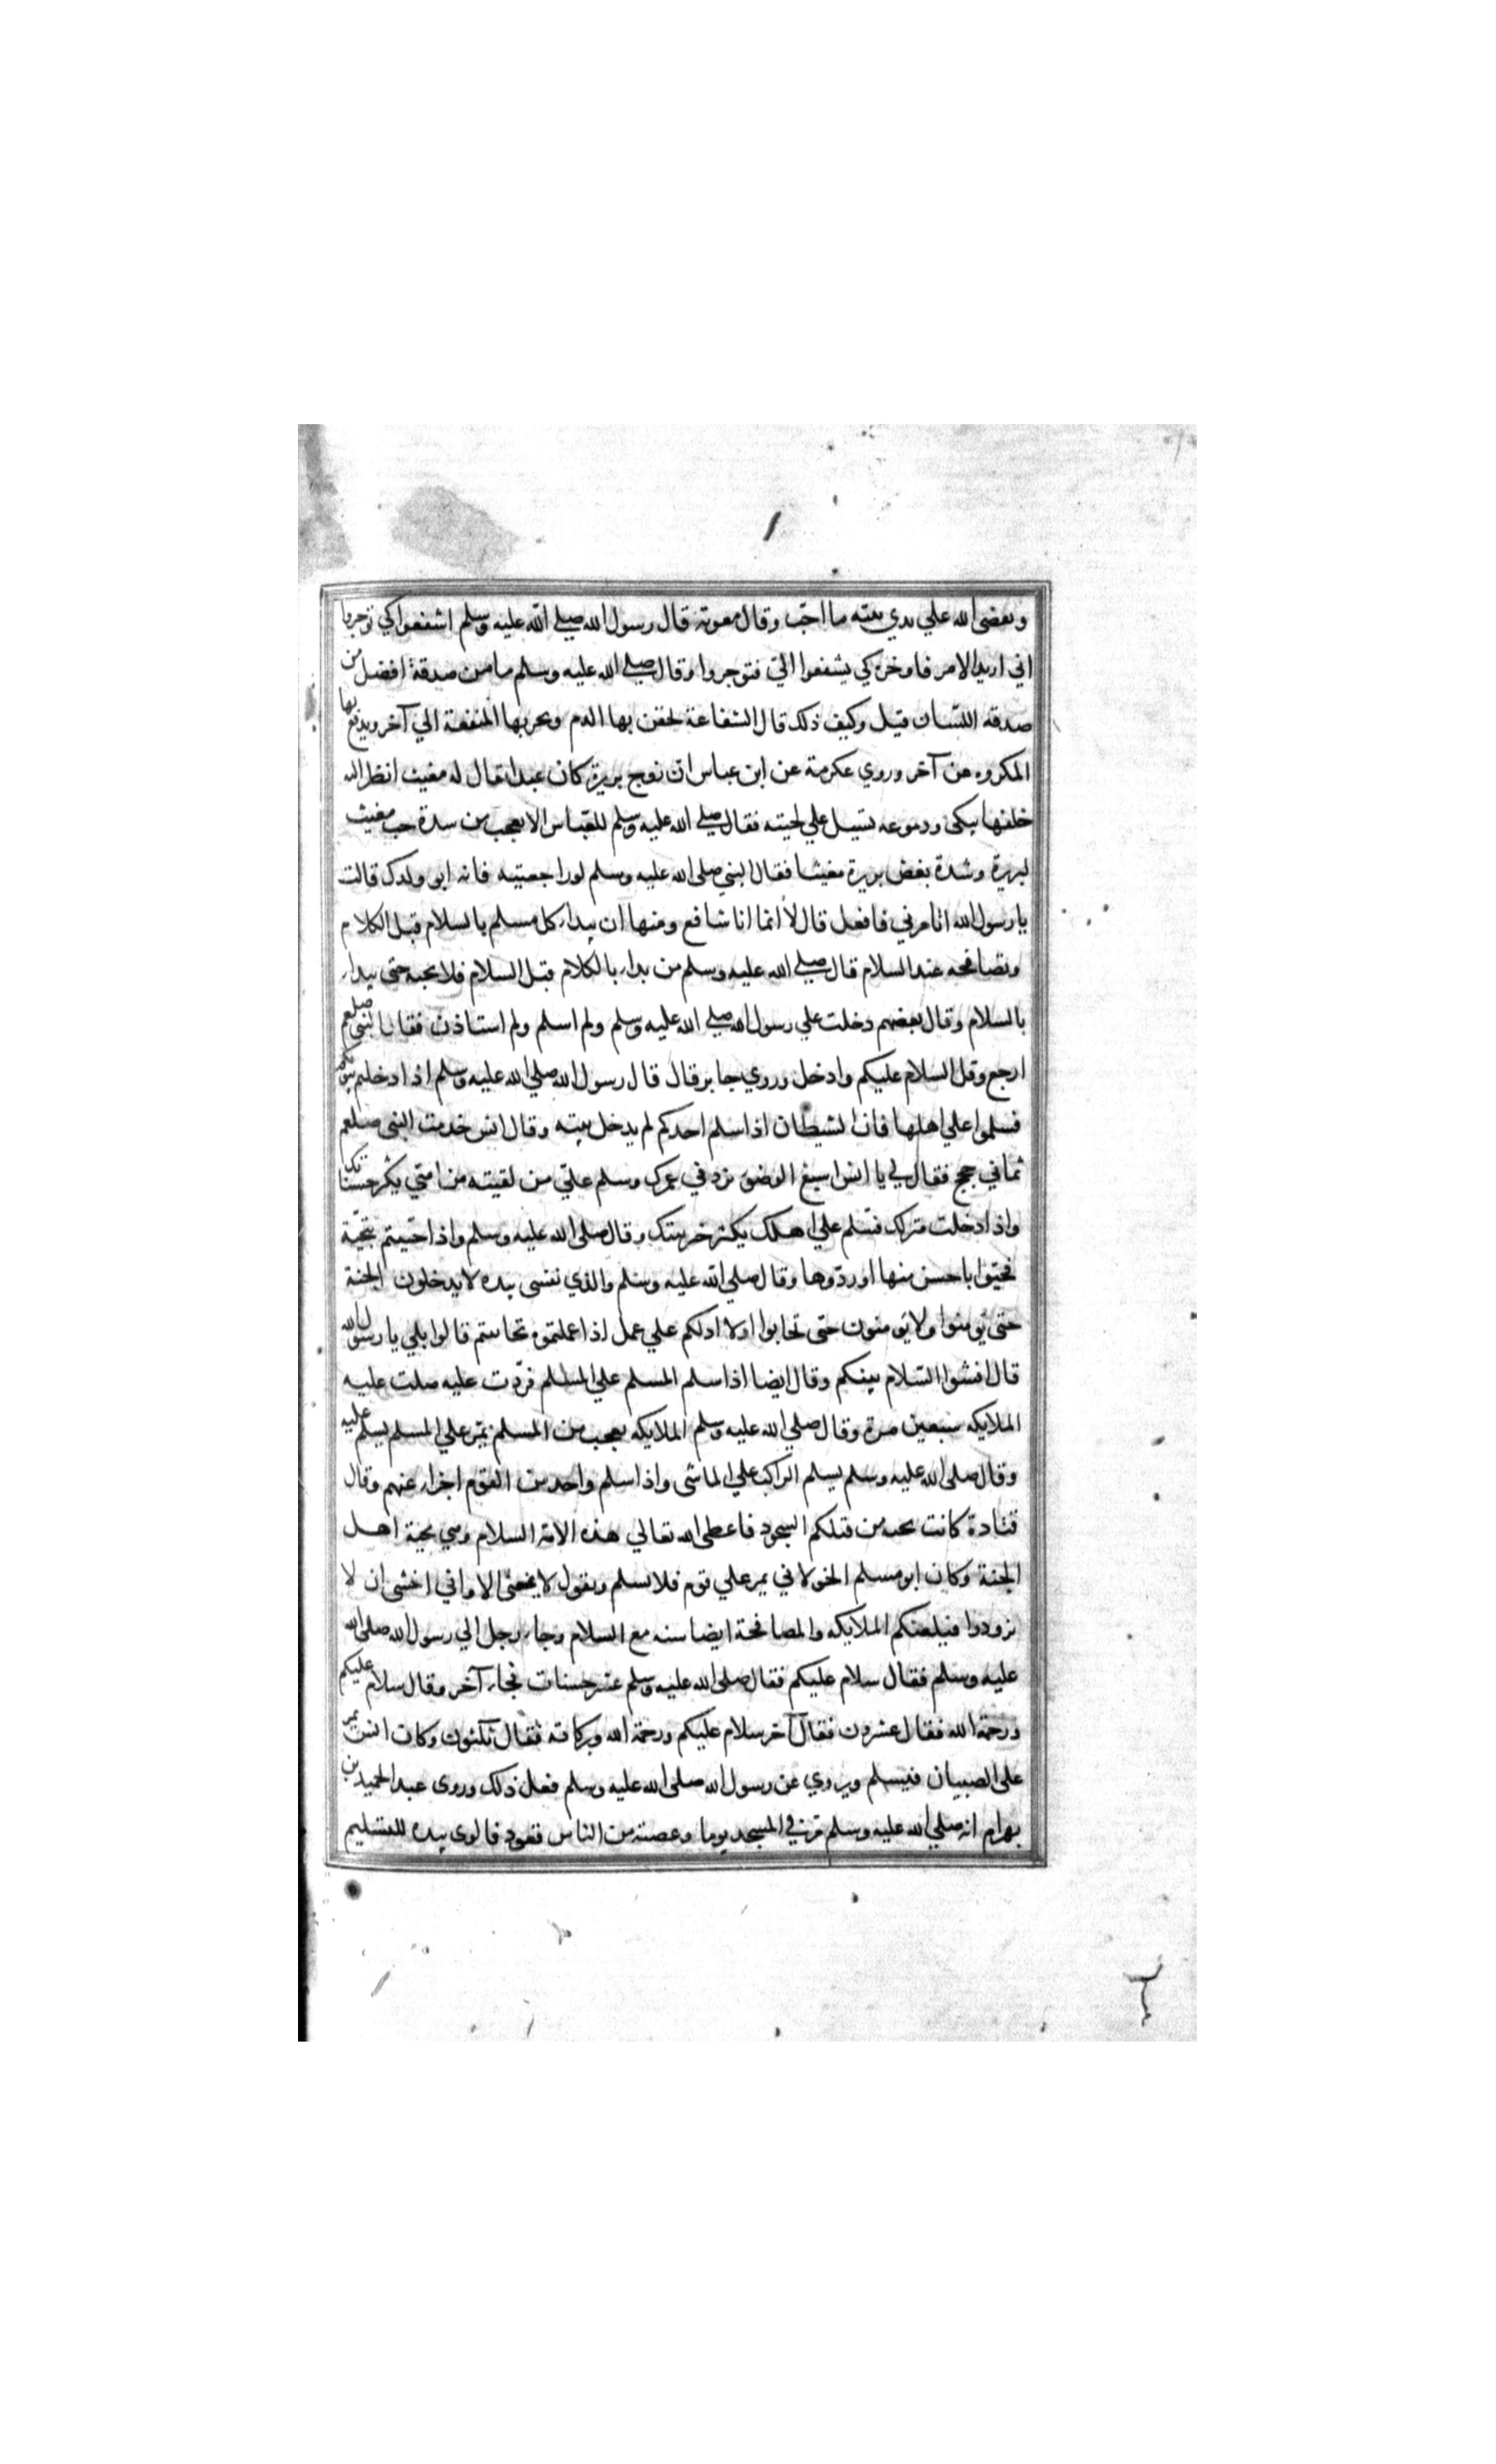 ويقضي الله علي يدي نبيه ما احب وقال معوية قال رسول الله صلي الله عليه وسلم اشفعوا كي توجروا
اني اريد الامر فاوخره كي يشفعوا الي فتوجروا وقال صلي الله عليه وسلم ما من صدقة افضل من
صدقة اللسان قيل وكيف ذلك قال الشفاعة تحقن بها الدم وتجر بها المنفعة الي آخر ويدفع بها
المكروه عن آخر وروي عكرمة عن ابن عباس ان زوج بريرة كان عبدا يقال له مغيث انظر اليه
خلفها يبكى ودموعه تسيل علي لحيته فقال صلي الله عليه وسلم للعباس الا تعجب من شدة حب مغيث
لبريرة وشدة بغض بريرة مغيثا فقال النبي صلى الله عليه وسلم لو راجعتيه فانه ابو ولدك قالت
يا رسول الله اتامرني فافعل قال لا انما انا شافع ومنها ان يبداء كل مسلم بالسلام قبل الكلام
وتصافحه عند السلام قال صلي الله عليه وسلم من بداء بالكلام قبل السلام فلا تجبه حتى يبداء
بالسلام وقال بعضهم دخلت علي رسول الله صلي الله عليه وسلم ولم اسلم ولم استاذن فقال النبى صلعم
ارجع وقل السلام عليكم وادخل وروي جابر قال قال رسول الله صلي الله عليه وسلم اذا دخلتم بيوتكم
فسلموا علي اهلها فان الشيطان اذا سلم احدكم لم يدخل بيته وقال انس خدمت النبى صلعم
ثماني حجج فقال لي يا انس اسبغ الوضو يزد في عمرك وسلم علي من لقيته من امتي يكثر حسناتك
واذا دخلت منزلك فسلم علي اهلك يكثر خير بيتك وقال صلى الله عليه وسلم واذا حييتم بتحية
فحيوا باحسن منها او ردوها وقال صلي الله عليه وسلم والذي نفسى بيده لا يدخلون الجنة
حتى تومنوا ولا تومنون حتى تحابوا اولا ادلكم علي عمل اذا عملتموه تحاببتم قالوا بلي يا رسول الله
قال افشوا السلام بينكم وقال ايضا اذا سلم المسلم علي المسلم فردت عليه صلت عليه
الملايكه سبعين مرة وقال صلي الله عليه وسلم الملايكه يعجب من المسلم يمر علي المسلم يسلم عليه
وقال صلى الله عليه وسلم يسلم الراكب علي الماشى واذا سلم واحد من القوم اجزاء عنهم وقال
قتادة كانت تحية من قبلكم السجود فاعطى الله تعالي هذه الامة السلام وهي تحية اهل
الجنة وكان ابو مسلم الخولاني يمر علي قوم فلا يسلم ويقول لا يمنعني الا واني اخشى ان لا
يردوا فيلعنكم الملايكه والمصافحة ايضا سنه مع السلام وجاء رجل الي رسول الله صلى الله
عليه وسلم فقال سلام عليكم فقال صلى الله عليه وسلم عشر حسنات فجاء آخر وقال سلام عليكم
ورحمة الله فقال عشرون فقال آخر سلام عليكم ورحمة الله وبركاته فقال ثلثون وكان انس يمر
على الصبيان فيسلم ويروي عن رسول الله صلى الله عليه وسلم فعل ذلك وروى عبد الحميد بن
بهرام انه صلي الله عليه وسلم مر في المسجد يوما وعصبة من الناس قعود فالوى بيده للتسليم